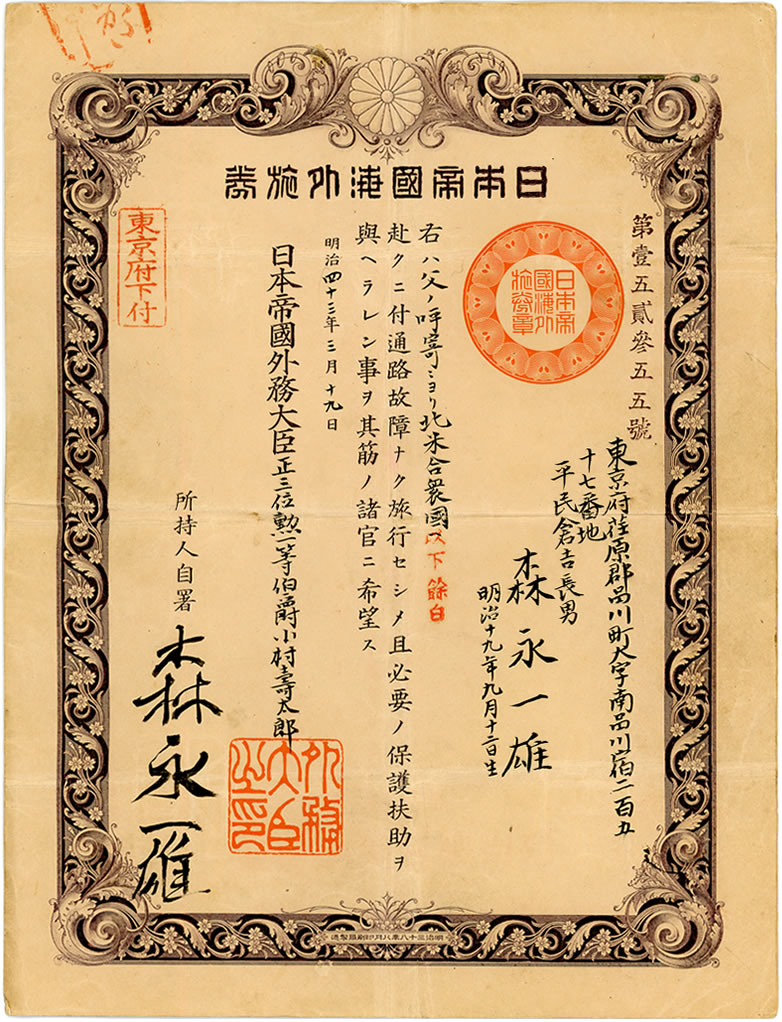 日本帝國海外旅券
第壹五貳參五五號
東京府荏原郡品川町大字南品川宿二百五
十七番地
平民倉吉長男
森永一雄
明治十九年九月十二日生
日本帝
國海外
旅券章
右ハ父ノ呼寄ニヨリ北米合衆國以下餘白
赴クニ付通路故障ナク旅行セシメ且必要ノ保護扶助ヲ
與ヘラレン事ヲ其筋ノ諸官ニ希望ス
明治四十三年三月十九日
日本帝國外務大臣正三位勲一等伯爵小村壽太郎
外務
大臣
之印
所持人自署
森永一雄
東京府下付
明治三十八年八月印刷局製造